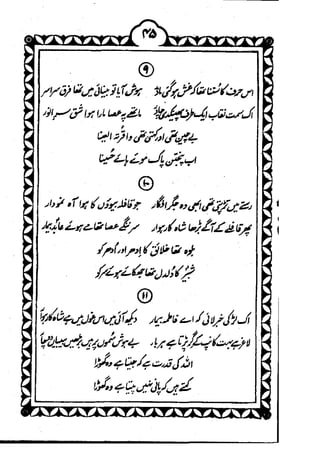 ۴۵
۹
اس حرف کا سننا تھا کہ غش ہو گئی ہوش آیا تو بینائی میں تھا فرق سراسر
اک سمت نقاب ایک طرف پھینکدی چادر ماتھے پہ عصا مارا ہوا شق سرِ انور
بے چین تھی اور کہتی تھی وا قرۃ العینا
اب پنجتن پاک موئے ہائے حسینا
۱۰
رستے میں تڑپتی تھی ابھی وہ جگر افگار جو قافلہ بیووں کا ہوا آہ نمودار
پھر قافلے کے آگے بڑھا شاہ کا رہوار سر ننگے عصا تھامے ہوئے عابد بیمار
جلوہ تھا خلائق کا اِدھر اور اُدھر کو
شبیر کا دلدل تھا جھکائے ہوئے سر کو
۱۱
اک لڑکی خبر لائی کہ اے فاطمہ بیمار دیکھ آئی میں اس غول میں ہے شاہ کا رہوار
لاغر ہے بہت کانپ کے گر پڑتا ہے ہر بار بے ہوش
اللہ کی قدرت ہے کہ جیتا ہے وہ گھوڑا
کہتے ہیں کہ پانی نہیں پیتا ہے وہ گھوڑا